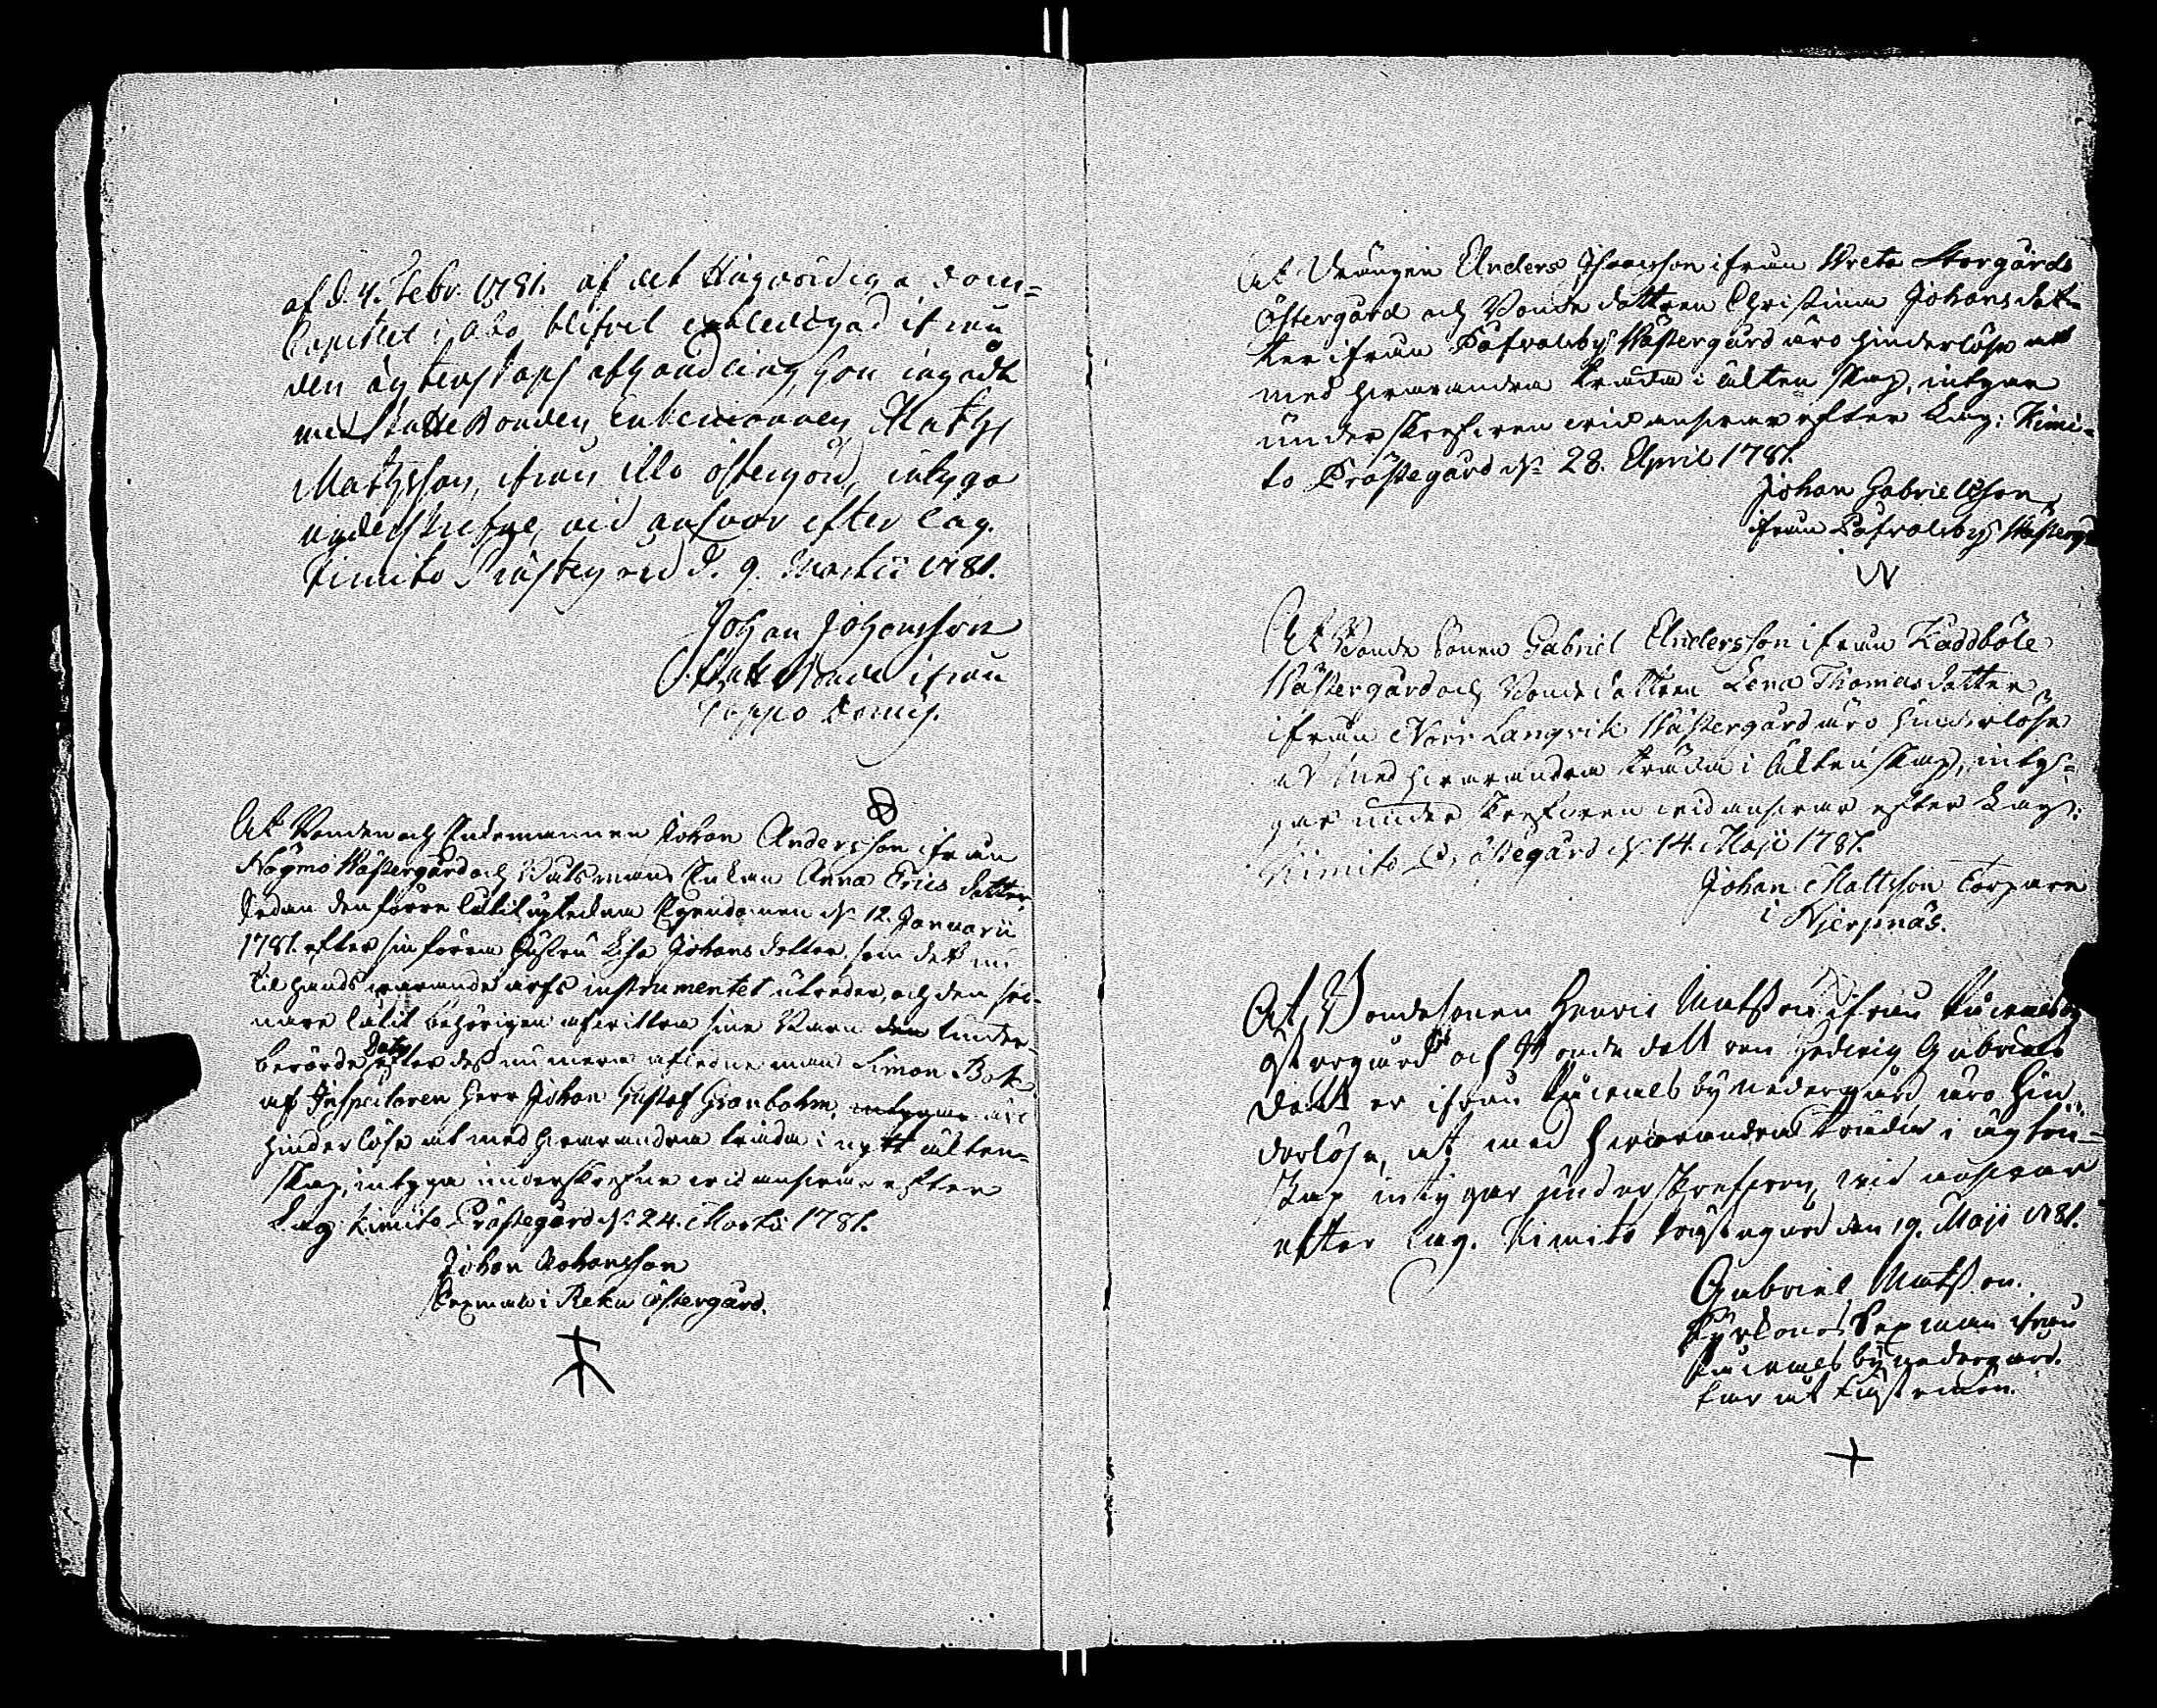 af d. 4. Febr. 1781. af det Högvördiga Dom-
Capitlet i Åbo blifvit entledigad ifrån
den ägtenskaps afhandling, hon ingådt
med Skatte Bonden Enkemannen Matths
Mathsson, ifrån Illo östergård, intyga
underskrefne, vid answar efter lag.
Kimito Prästegård d. 9. Martii 1781.
Johan Johansson
Skatte Bonde ifrån
Toppo
At Bonden och Enkemannen Johan Andersson ifrån
Högmo Wästergård och Enkan Anna Erics dotter,
sedan den förre låtit upteckna Egendomen d. 12. Januarii
1781. efter sin förra Hustru Lisa Johans dotter, som det nu
til hands warande arfs instrumentet utreder, och den sed-
nare låtit behörigen afwittra sine Barn den under-
berörde dato efter dess numera aflidne man Simon
af Inspectoren Herr Johan Gustaf Granbohm, intygar äro
hinderlöse at med hwarandra träda i nytt äkten-
skap, intyga underskrefne wid answar efter
Lag. Kimito Prästegård d. 24. Martii 1781.
Johan Johansson
Sexman i Reku Östergård.
At Drängen Anders Isacsson ifrån Wreta Storgårds
Östergård och Bonde dottren Christina Johansdot-
ter ifrån Påfvalsby Wästergård äro hinderlöse at
med hwarandra träda i äkten skap, intygar
underskrefven wid answar efter Lag: Kimi-
to Prästegård d. 28. April 1781.
Johan Gabrielsson
ifrån Påfvalsby Wästerg
At Bonde Sonen Gabriel Andersson ifrån Kaddböle
Wästergård och Bonde dottren Lena Thomasdotter
ifrån Norr Langvik Wästergård äro hinderlöse
at med hwarandra träda i Äkten skap, inty-
gar under skrefven wid answar efter Lag:
Kimito Prästegård d. 14. Maji 1781.
Johan Mattsson Torpare
i Hjerpnäs.
At Bondesonen Henric Matsson ifrån
östergård och Bonde dottren Hedwig Gabriels
dotter ifrån by nedergård äro hin-
derlöse, at med hwarandra träda i ägten-
skap intygar underskrefven, wid answar
efter lag. Kimito Prästegård den 19. Maji 1781.
Gabriel Matsson.
Kyrkones Sexman ifrån
by nedergård.